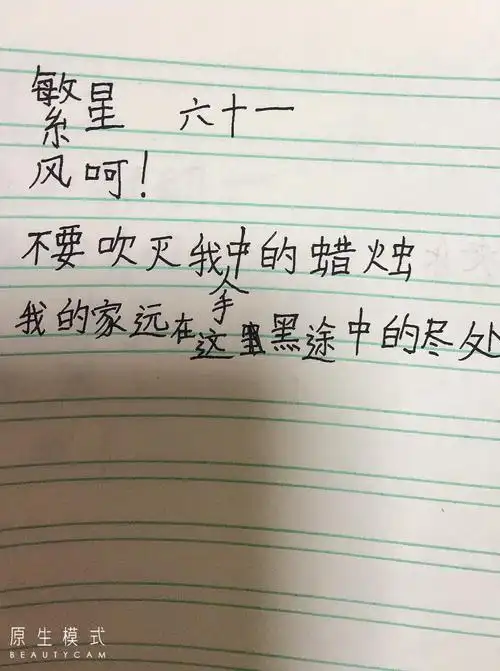 繁星 六十一
风呵!
不要吹灭我手中的蜡烛
我的家远在这黑途中的尽处
原生模式
BEAUTYCAM